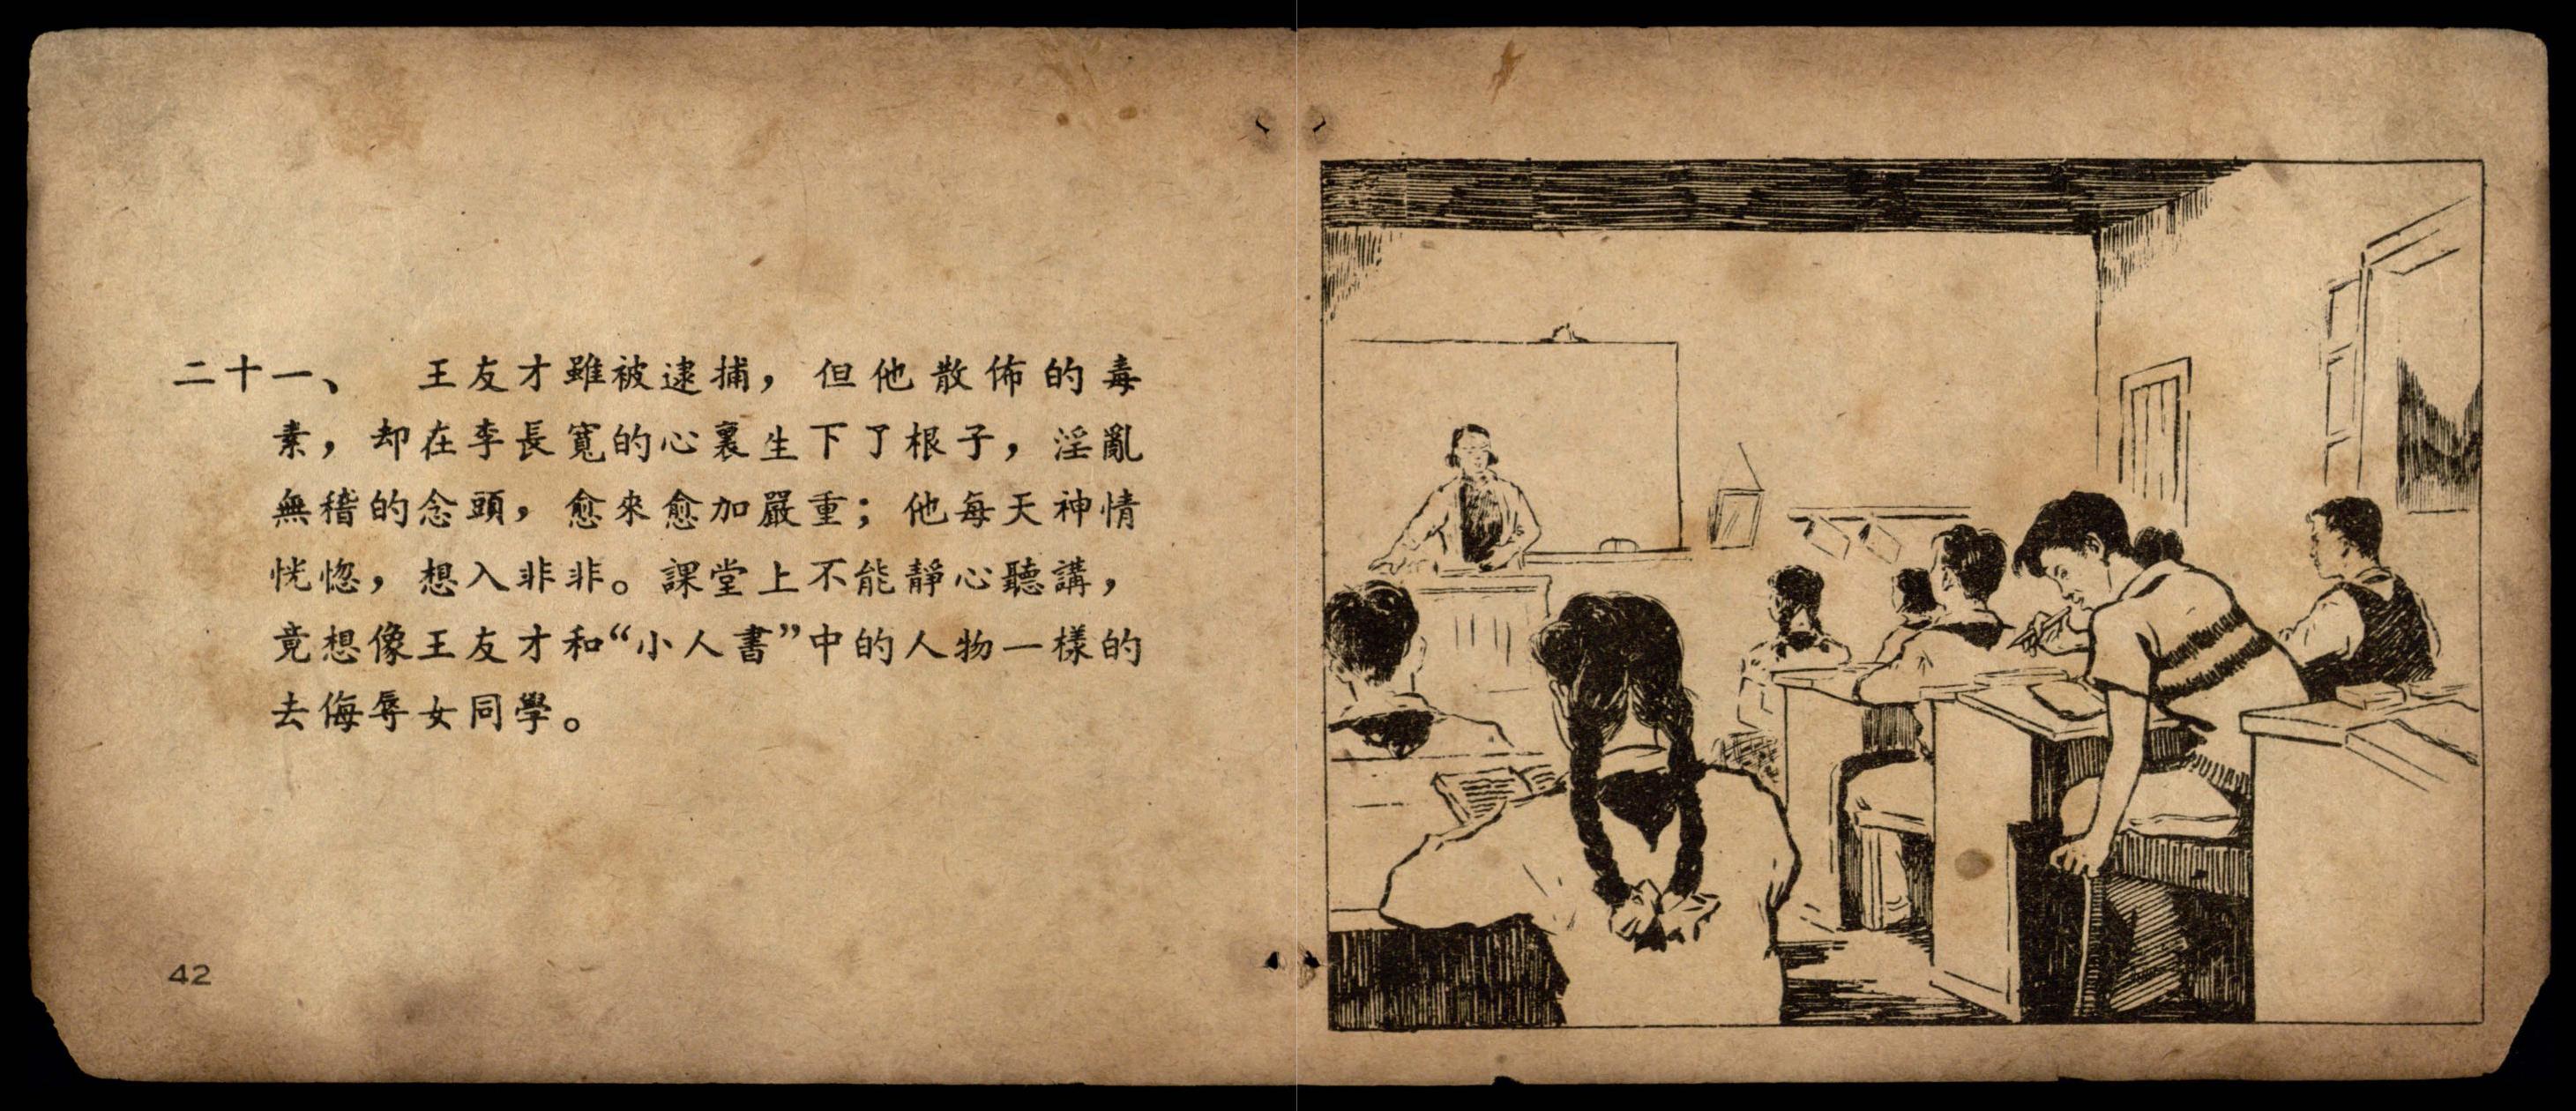 二十一、　王友才雖被逮捕，但他散佈的毒
素，却在李長寬的心裏生下了根子，淫亂
無稽的念頭，愈來愈加嚴重；他每天神情
恍惚，想入非非。課堂上不能靜心聽講，
竟想像王友才和“小人書”中的人物一樣的
去侮辱女同學。
42